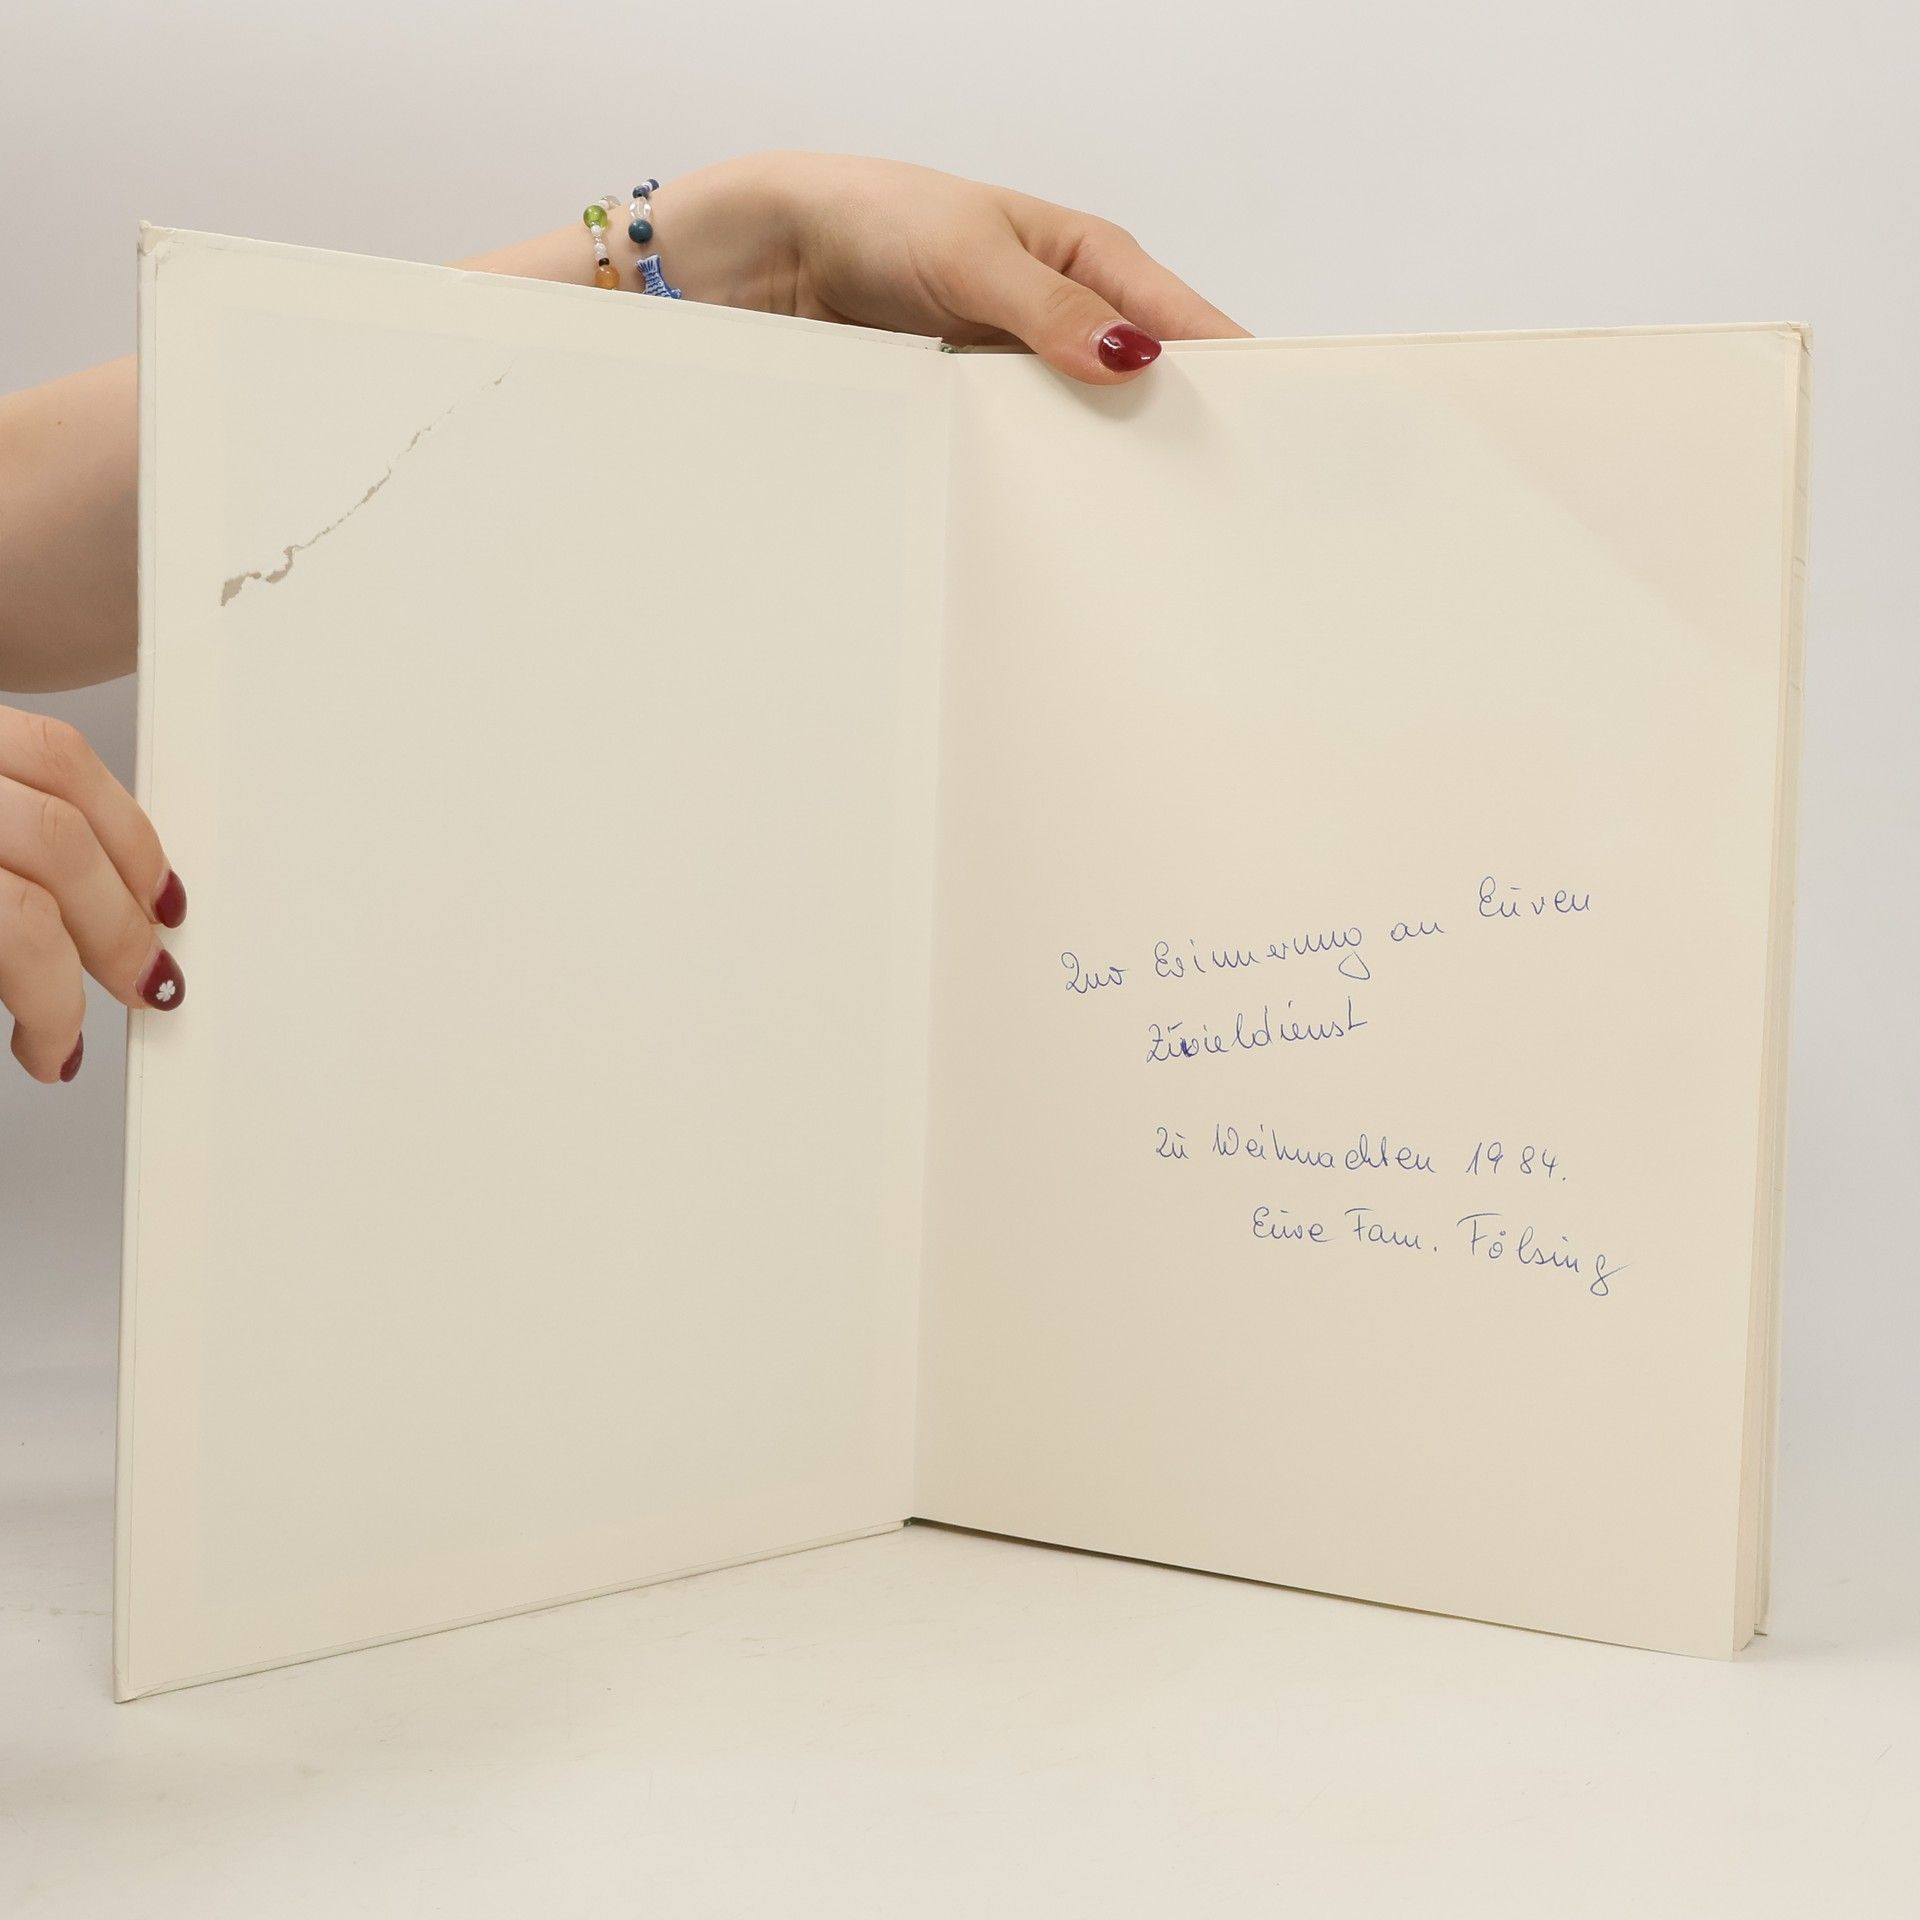 Zur Erinnerung an Euren
Zivieldienst
zu Weihnachten 1984.
Eure Fam. Fölsing